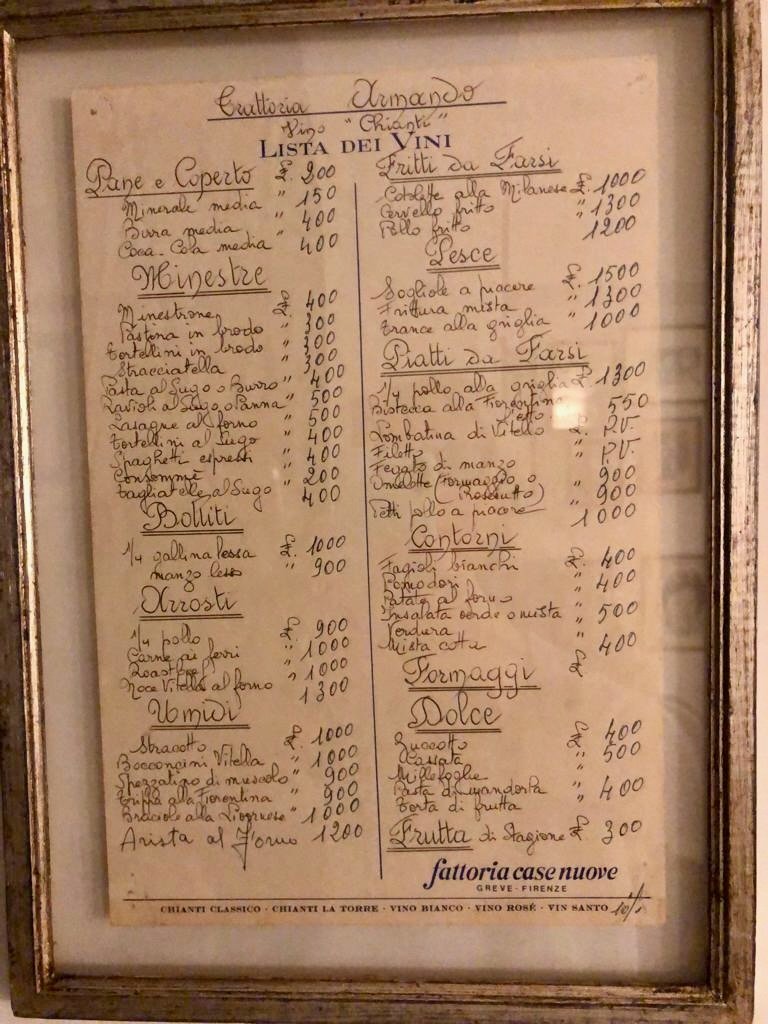 Trattoria Armando
Vino "Chianti"
LISTA DEI VINI
Pane e Coperto £. 200
Minerale media " 150
Birra media " 400
Coca-Cola media " 400
Minestre
Minestrone £. 400
Pastina in brodo " 300
Tortellini in brodo " 300
Stracciatella " 300
Pasta al Sugo o Burro " 400
Ravioli al Sugo o Panna " 500
Lasagne al forno " 500
Tortellini al Sugo " 400
Spaghetti espressi " 400
Consommè " 200
Tagliatelle al Sugo " 400
Bolliti
1/4 gallina lessa £. 1000
manzo lesso " 900
Arrosti
1/4 pollo £. 900
Carne ai ferri " 1000
Roastbeef " 1000
Noce Vitella al forno " 1300
Umidi
Stracotto £. 1000
Bocconcini Vitella " 1000
Spezzatino di muscolo " 900
Trippa alla Fiorentina " 900
Braciole alla Livornese " 1000
Arista al Forno 1200
Fritti da Farsi
Cotolette alla Milanese £. 1000
Cervello fritto " 1300
Pollo fritto 1200
Pesce
Sogliole a piacere £. 1500
Frittura mista " 1300
Trance alla griglia " 1000
Piatti da Farsi
1/4 pollo alla griglia £. 1300
Bistecca alla Fiorentina
l'etto " 550
Lombatina di Vitello £. P.V.
Filetto " P.V.
Fegato di manzo " 900
Omelette (Formaggio o
Prosciutto) " 900
Petti pollo a piacere " 1000
Contorni
Fagioli bianchi £. 400
Pomodori " 400
Patate al forno "
Insalata verde o mista " 500
Verdura "
Mista cotta " 400
Formaggi £
Dolce
Zuccotto £ 400
Cassata " 500
Millefoglie "
Pasta di mandorla " 400
Torta di frutta "
Frutta di Stagione £ 300
fattoria case nuove
GREVE - FIRENZE
CHIANTI CLASSICO · CHIANTI LA TORRE · VINO BIANCO · VINO ROSÉ · VIN SANTO